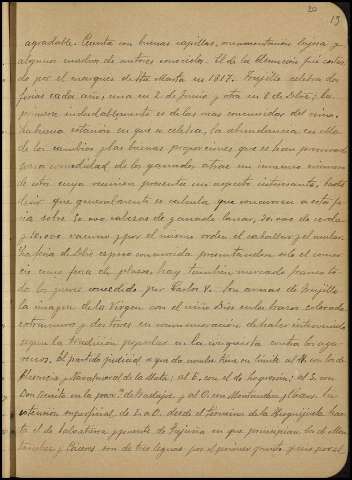 20
19
agradable. Cuenta con buenas capillas, ornamentacion lujosa y
algunos cuadros de autores conocidos. El de la Asuncion fué costea-
do por el marques de Sta Marta en 1817. Trujillo celebra dos
ferias cada año, una en 2 de Junio y otra en 8 de Dbre; la
primera indudablemente es de las mas concurridas del reino.
La buena estacion en que se celebra, la abundancia en ella
de los cambios y las buenas proporciones que se han procurado
para comodidad de los ganados atrae un inmenso número
de estos cuya reunion presenta un aspecto interesante, baste
decir que generalmente se calcula que concurren a esta fe-
ria sobre cabezas de ganado lanar, de cerda
y vacuno y por el mismo orden el caballar y el mular.
La feria de Dbre es poco concurrida presentandose solo el comer-
cio como feria de plazas, hay tambien mercado franco to-
dos los jueves concedido por Carlos V. Las armas de Trujillo
la imagen de la Virgen con el niño Dios en los brazos colocada
entre muro y dos torres en conmemoracion de haber intervenido
segun la tradicion popular en la conquista contra los aga-
renos. El partido judicial a que da nombre tiene su limite al N. con los de
Plasencia y Navalmoral de la Mata; al E. con el de Logrosan; al S. con
Don Benito en la prov.ª de Badajoz, y al O. con Montanchez y Cáceres. Su
estension superficial de E. a O. desde el termino de la has-
ta el de Salvatierra y puente de en que principian los de Mon-
tanchez y Cáceres son de tres leguas por el primer punto y seis por el